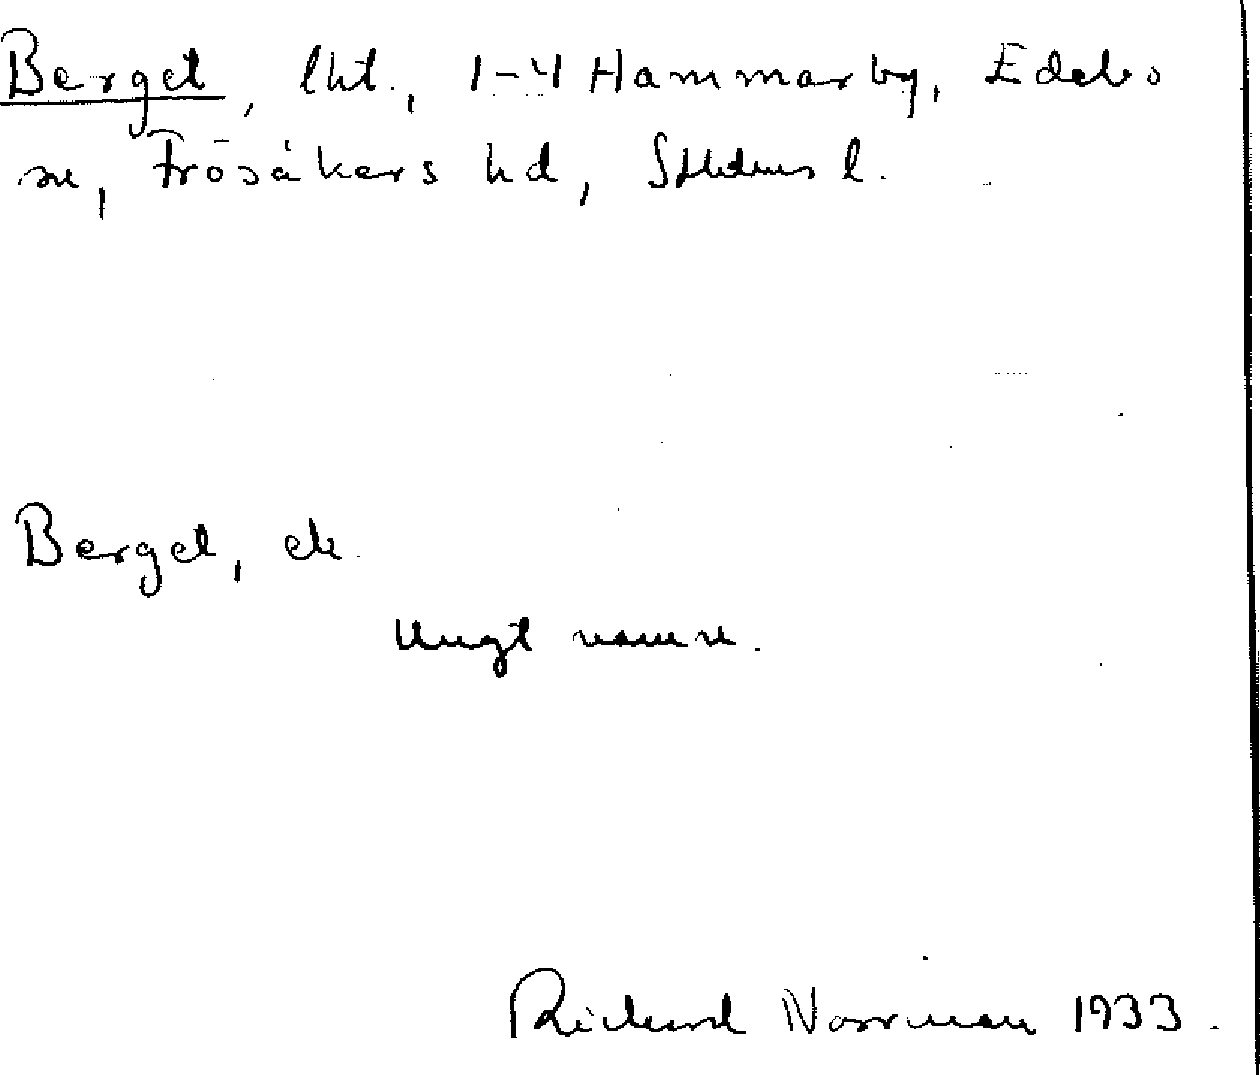 Berget, lht., 1-4 Hammarby, Edebo
sn, Frösåkers hd, Sthlms l.
Berget,
Ungt namn.
Richard Norrman 1933.